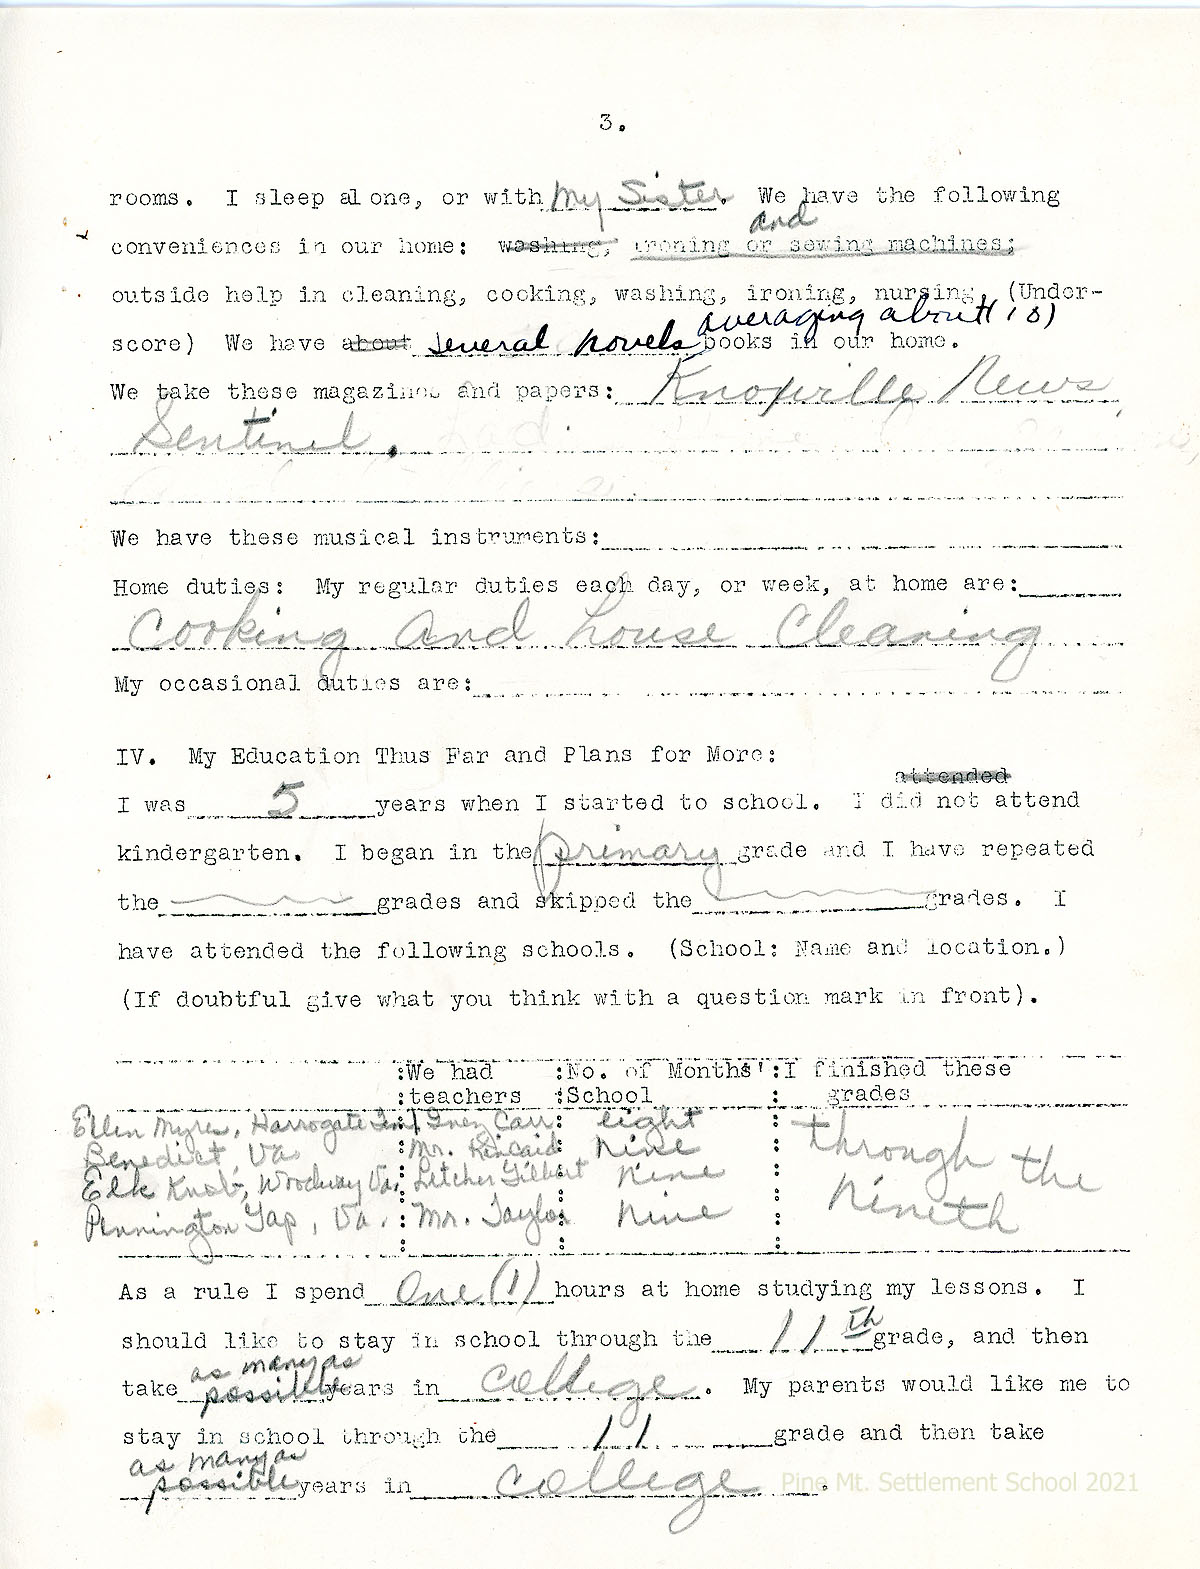 3.
rooms. I sleep alone, or with My Sister. We have the following
and
conveniences in our home: washing, ironing or sewing machines;
outside help in cleaning, cooking, washing, ironing, nursing. (Under-
averaging about 10)
score) We have about several novels books in our home.
We take these magazines and papers: Knoxville News
Sentinel.
We have these musical instruments:
Home duties: My regular duties each day, or week, at home are:
Cooking and house Cleaning
My occasional duties are:
IV. My Education Thus Far and Plans for More:
attended
I was 5 years when I started to school. I did not attend
kindergarten. I began in the primary grade and I have repeated
the grades and skipped the grades. I
have attended the following schools. (School: Name and location.)
(If doubtful give what you think with a question mark in front).
:We had :No. of Months' :I finished these
:teachers :School : grades
Ellen Myres, Harrogate Tenn Inez Carr eight through the
Benedict, Va Mr. Kincaid nine
Elk Knob, Woodway Va. Letcher Gilbert nine nineth
Pennington Gap, Va. Mr. Taylor nine
As a rule I spend One (1) hours at home studying my lessons. I
should like to stay in school through the 11th grade, and then
as many as
take possible years in college. My parents would like me to
stay in school through the 11 grade and then take
as many as
possible years in college.
Pine Mt. Settlement School 2021